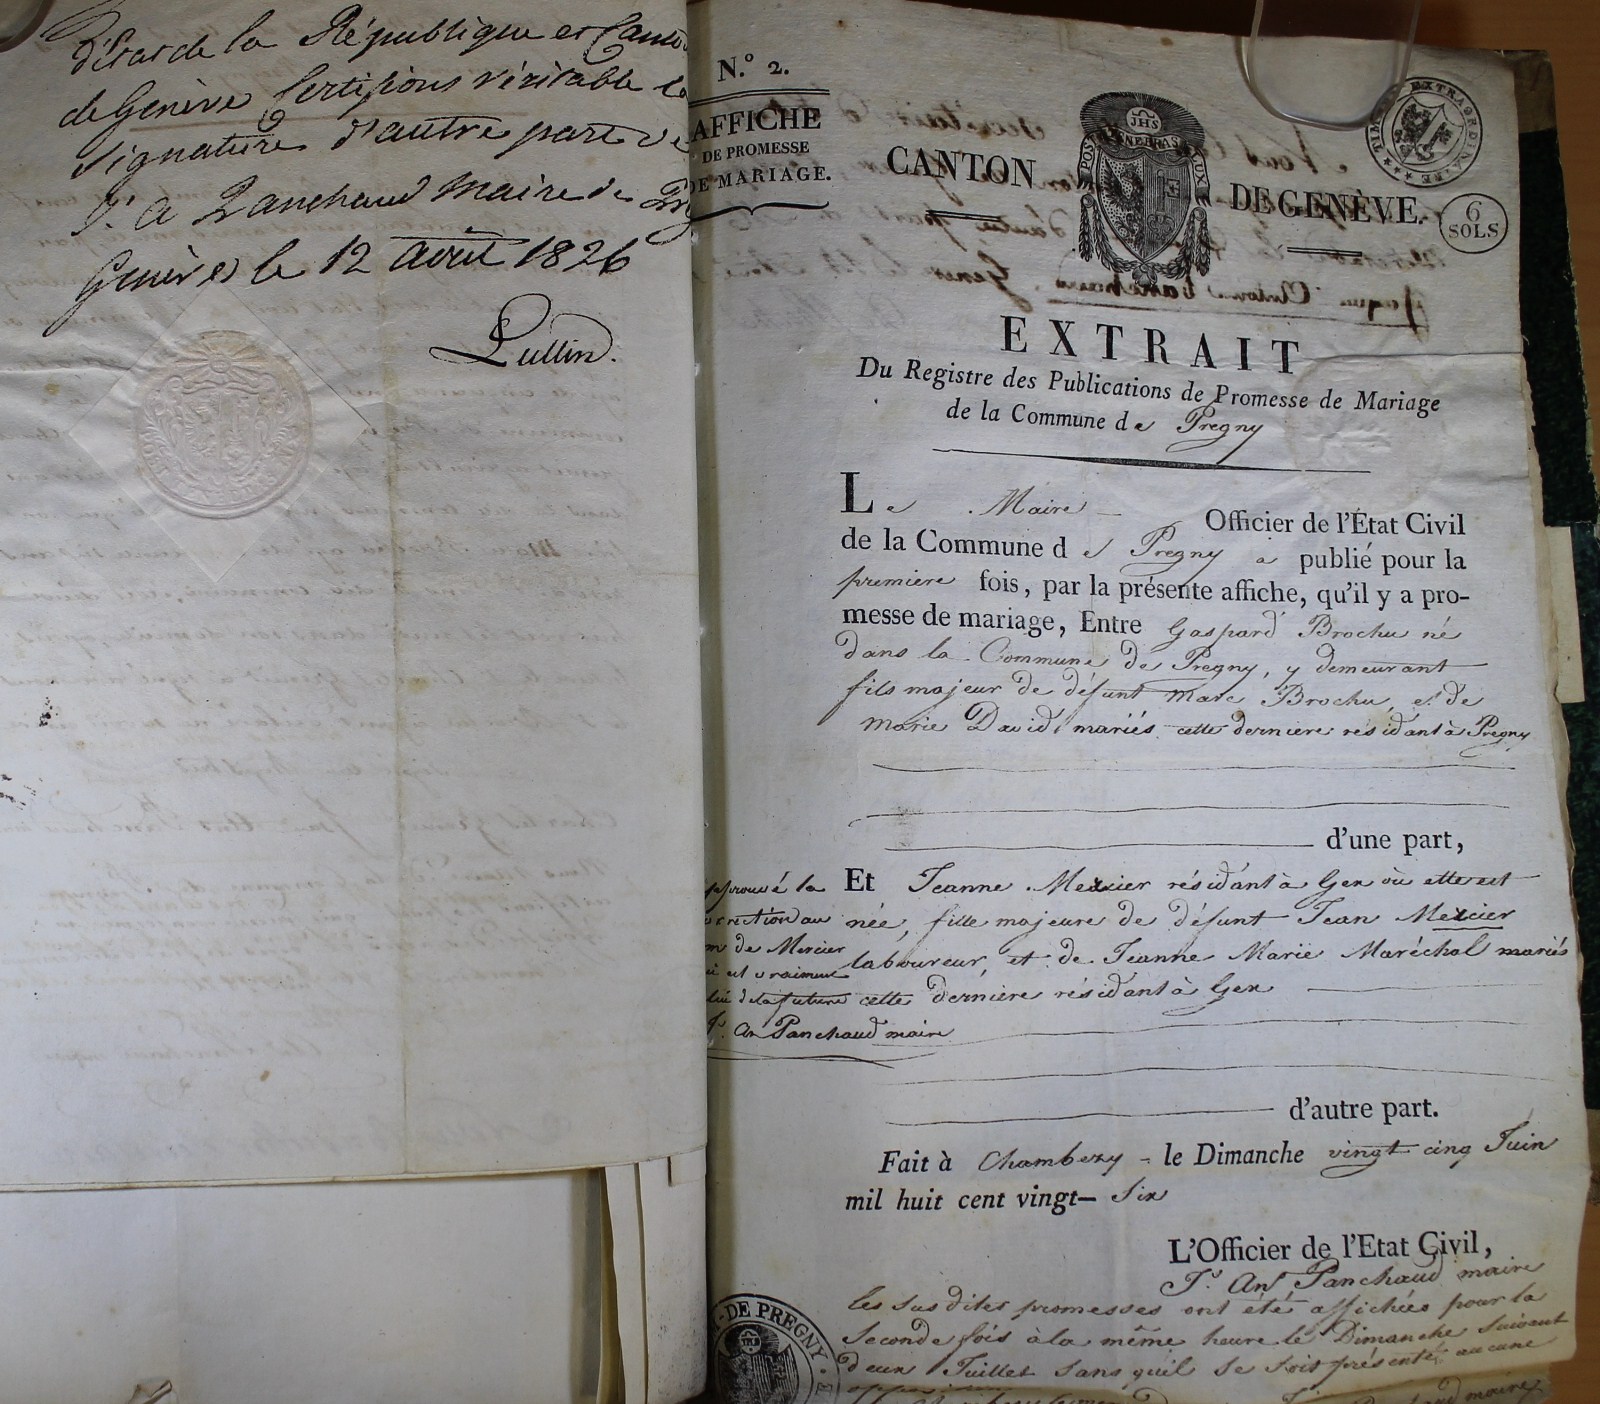 d'Etat de la République et Canton
de Genève Certifions véritable la
signature d'autre part de
J. A Panchaud Maire de Preg
Genève le 12 avril 1826
Lullin.
N.° 2.
AFFICHE
DE PROMESSE
DE MARIAGE.
POST TENEBRAS LUX
JHS
CANTON DE GENÈVE.
TIMBRE EXTRAORDINAIRE
6
SOLS
EXTRAIT
Du Registre des Publications de Promesse de Mariage
de la Commune de Pregny
Le Maire Officier de l'État Civil
de la Commune de Pregny a publié pour la
premiere fois, par la présente affiche, qu'il y a pro-
messe de mariage, Entre Gaspard Brochu né
dans la Commune de Pregny, y demeurant
fils majeur de défunt Marc Brochu, et de
Marie David mariés cette derniere résidant à Pregny
d'une part,
Et Jeanne Mercier résidant à Gex où elle est
née, fille majeure de défunt Jean Mercier
laboureur, et de Jeanne Marie Maréchal mariés
cette derniere résidant à Gex
approuvé la
rrection au
m de Mercier
ui est vraiment
lui de la future
J. An Panchaud maire
d'autre part.
Fait à Chambezy le Dimanche vingt cinq Juin
mil huit cent vingt- Six
L'Officier de l'Etat Civil,
J. Ant Panchaud maire
Les sus dites promesses ont étés affichées pour la
seconde fois à la même heure le Dimanche suivant
deux Juillet sans qu'il se soit présenté aucune
DE PREGNY